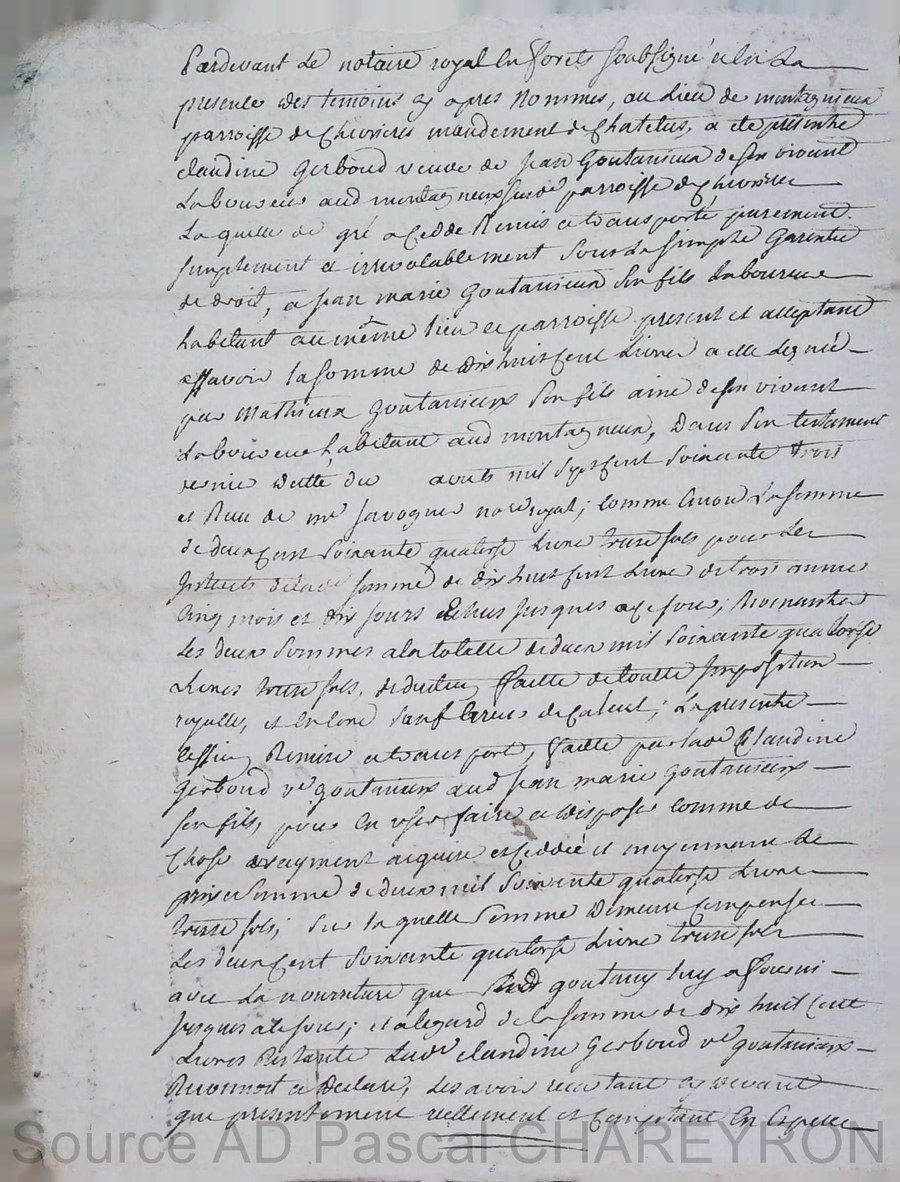 Pardevant Le notaire royal En forets soubsigné et En La
presence des temoins cy apres Nommes, au Lieu de montagnieux
parroisse de Chevrieres mandement de Chatelus, a ete presente
claudine Gerboud veuve de jean Goutanieux de son vivant
Laboureur aud montagneux susde parroisse de Chevriere
La quelle de gré a Cedde Remis et transporté purement
simplement et irrevocablement sous La simple Garentie
de droit, a jean marie Goutanieux son fils Laboureur
habitant au même lieu et parroisse present et acceptant
assavoir la somme de dix huit Cent Livres a elle Legué
par Mathieux goutanieux son fils ainé de son vivant
Laboureur habitant aud montagneux, Dans son testament
dernier datté du aouts mil sept Cent soixante trois
et Recu de me javogues nore royal; comme Encore La somme
de deux Cent soixante quatorse Livre treise sols pour Les
Interets de lade somme de dix huit Cent Livre de trois année
Cinq mois et dix jours Echus jusques a ce jour; Revenantes
Les deux sommes a la totalle de deux mil soixante quatorse
Livres treise sols, deduction faitte de toutte Imposition
royalle, et Encore sauf Erreur de Calcul; La presente
Cession Remise et transport, faitte par lade Claudine
Gerboud ve goutanieux aud jean marie goutanieux
son fils, pour En user faire et disposer comme de
Chose vrayment acquise et Ceddée et moyennant Le
prix et somme de deux mil soixante quatorse Livre
treise sols; sur la quelle somme Demeure Compensée
Les deux Cent soixante quatorse Livre treise sols
avec La nourriture que Led goutany luy a fourni
jusques a ce jour; et a legard de la somme de dix huit Cent
Livres Restante Lade claudine Gerboud ve goutanieux
Reconnoit et declare, Les avoir recu tant cy devant
que presentement reellement et Comptant En Espece
Source AD Pascal CHAREYRON